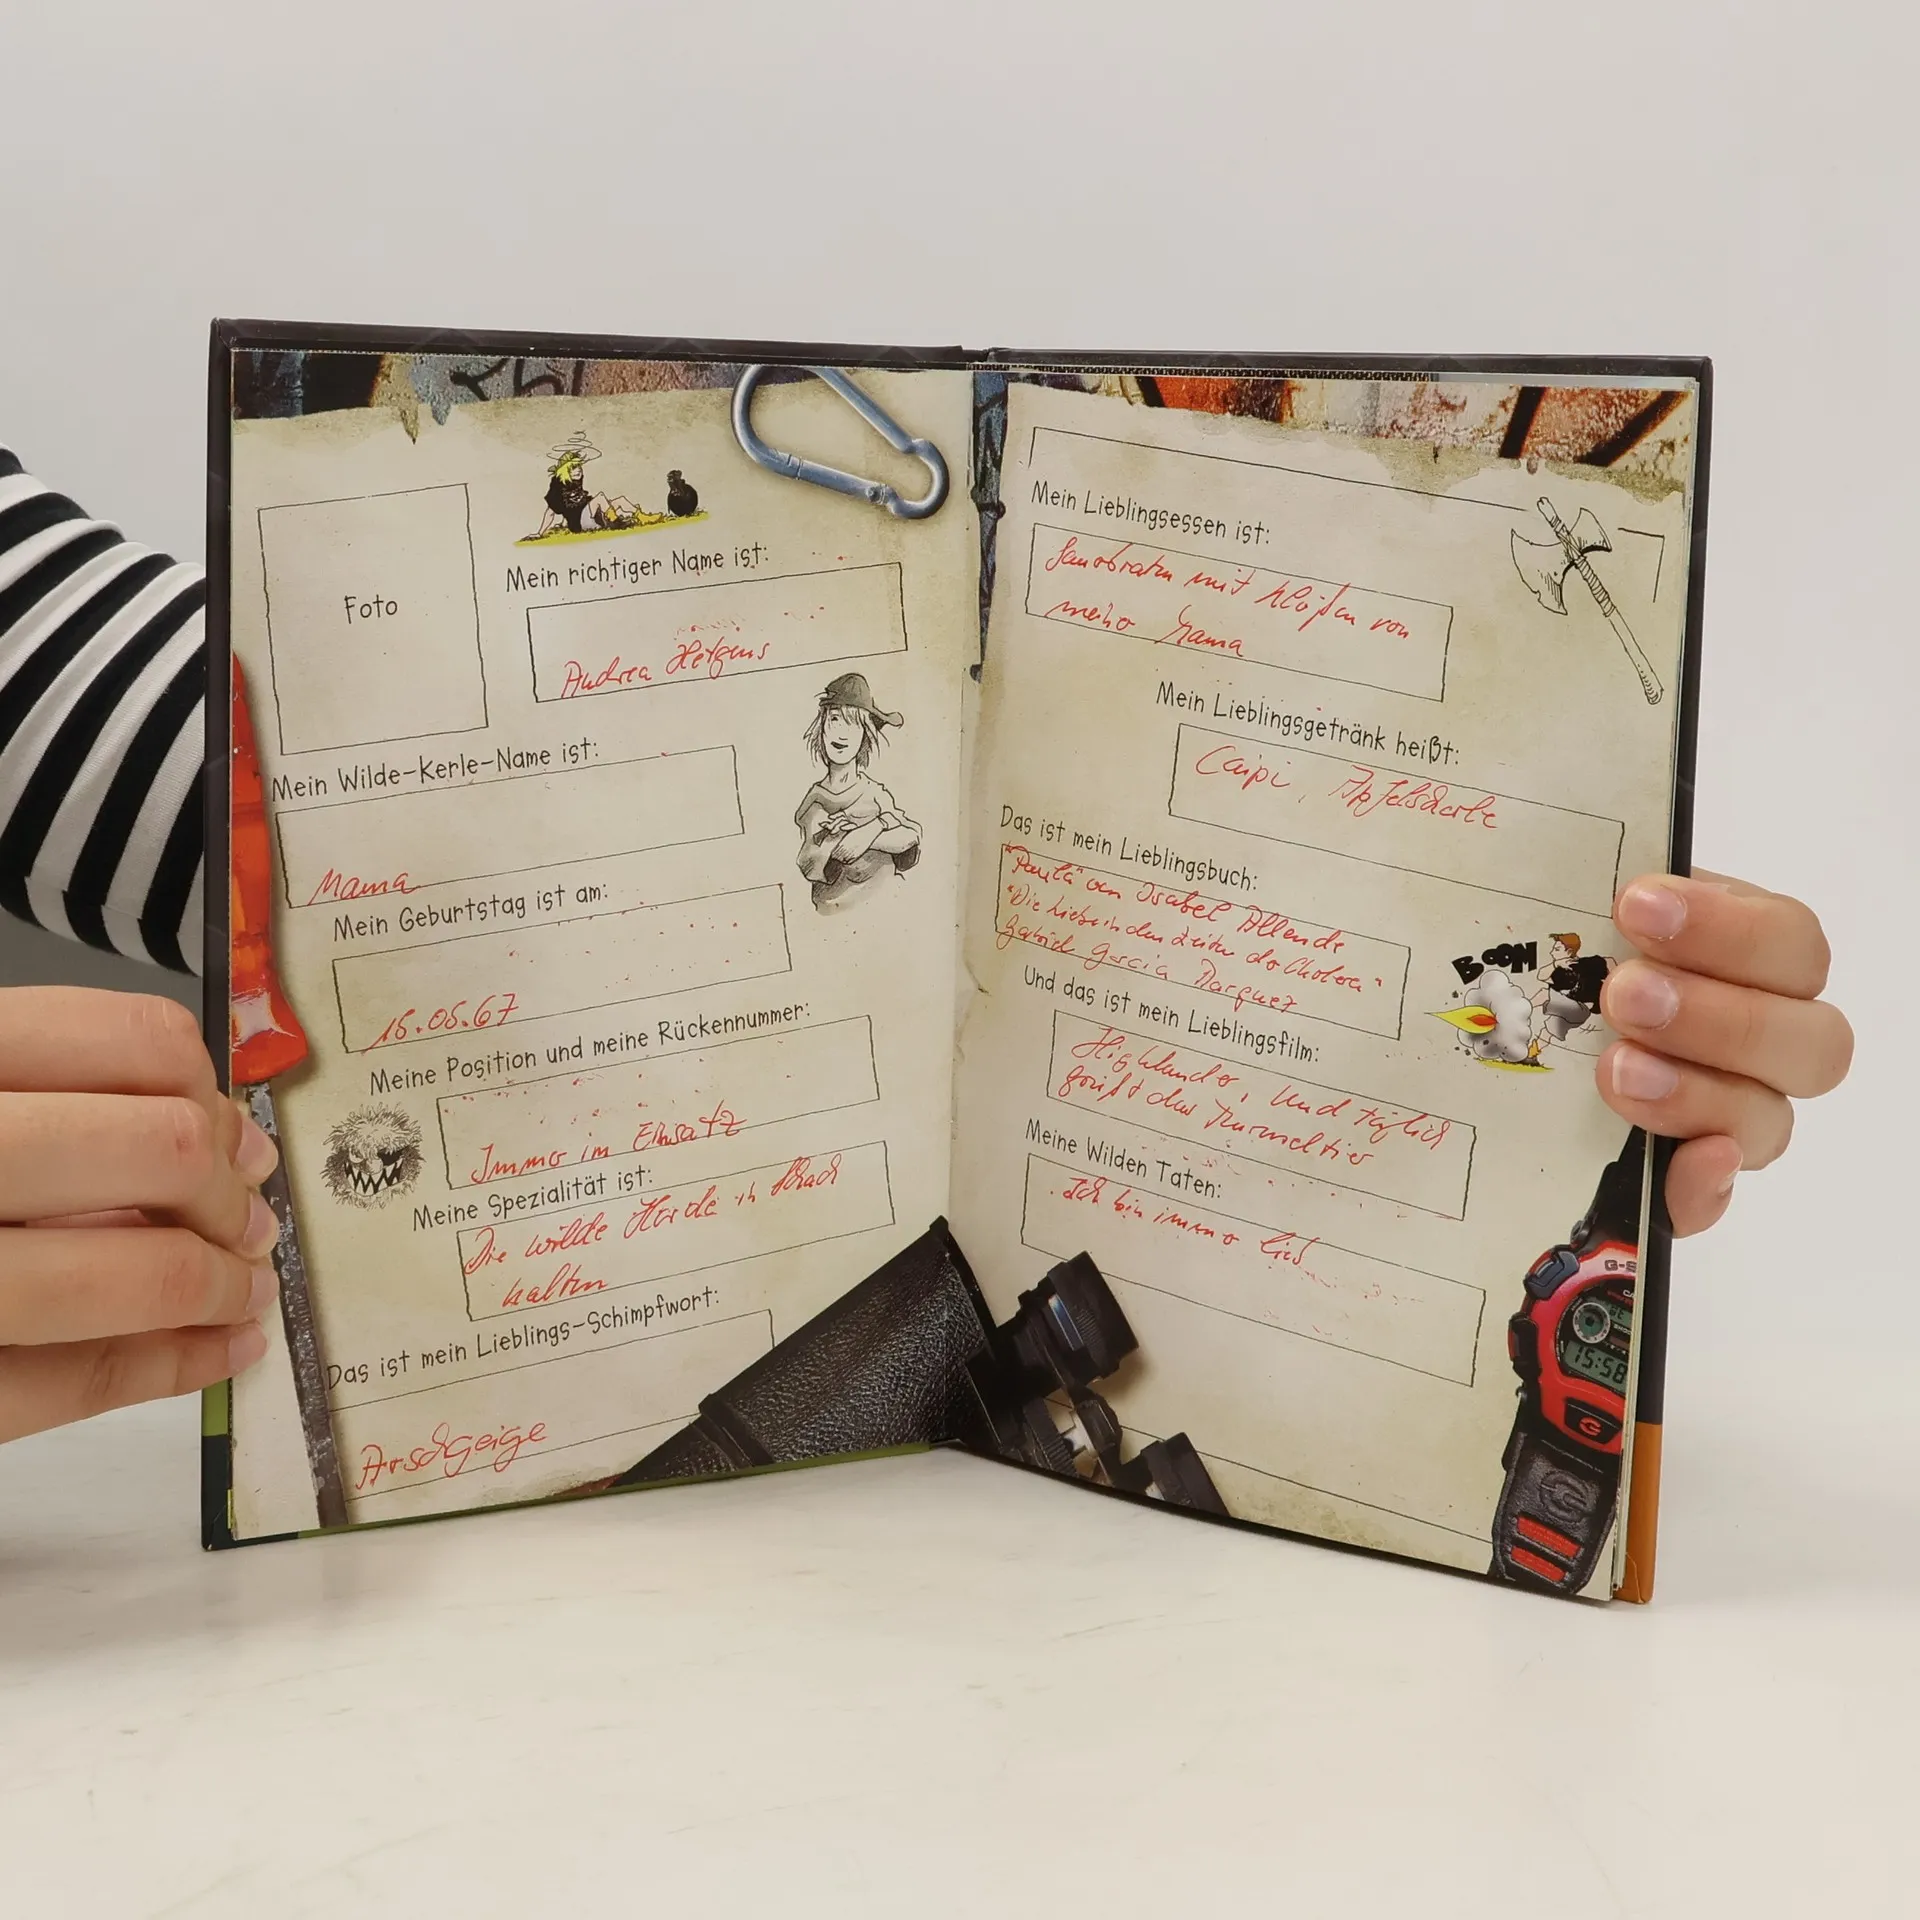 Foto
Mein richtiger Name ist:
Andrea
Mein Wilde-Kerle-Name ist:
Mama
Mein Geburtstag ist am:
Meine Position und meine Rückennummer:
Immer im Einsatz
Meine Spezialität ist:
Die wilde Horde in Schach
halten
Das ist mein Lieblings-Schimpfwort:
Arschgeige
Mein Lieblingsessen ist:
Sauerbraten mit Klößen von
meiner Mama
Mein Lieblingsgetränk heißt:
Caipi, Apfelschorle
Das ist mein Lieblingsbuch:
"Paula" von Isabel Allende
"Die Liebe in den Zeiten der Cholera"
Gabriel Garcia Marquez
BOOM
Und das ist mein Lieblingsfilm:
Highlander, Und täglich
grüßt das Murmeltier
Meine Wilden Taten:
Ich bin immer lieb
G-S
15:58
G